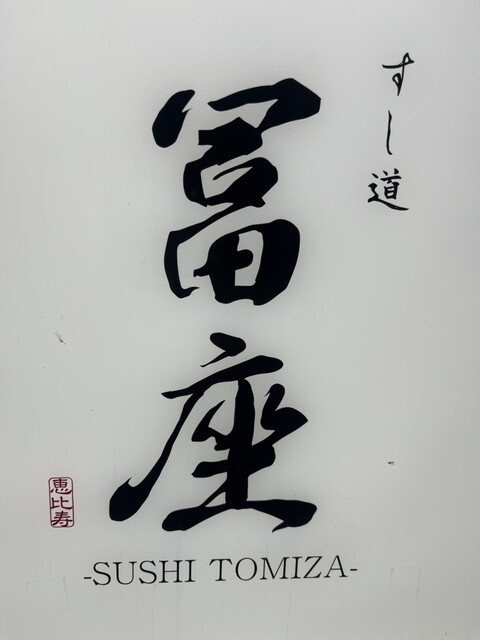 すし道
冨座
恵比寿
-SUSHI TOMIZA-